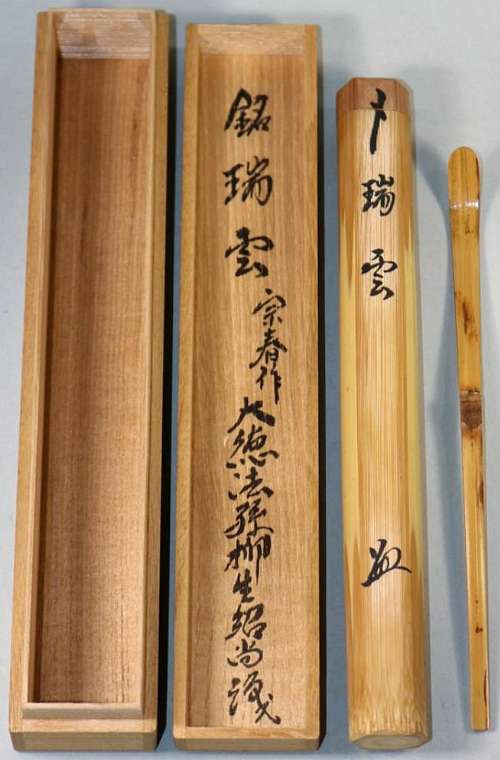 銘瑞雲
宗春作
大徳法孫柳生紹尚識
瑞雲